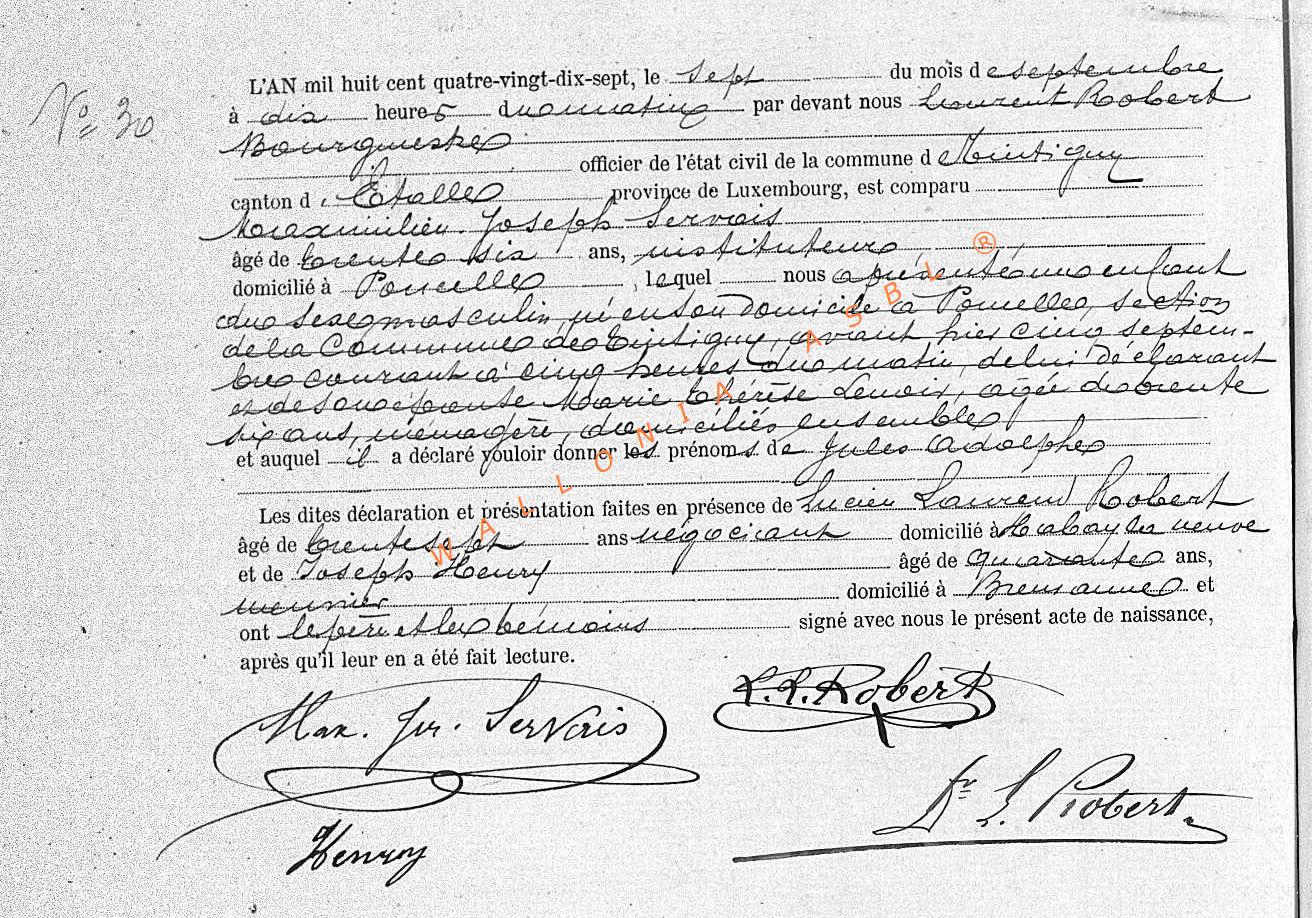 Nº 30
L'AN mil huit cent quatre-vingt-dix-sept, le sept du mois de septembre
à dix heures du matin par devant nous Laurent Robert
Bourgmestre
officier de l'état civil de la commune de Tintigny
canton d'Etalle province de Luxembourg, est comparu
Maximilien Joseph Servais
âgé de trente six ans, instituteur,
domicilié à Poncelle, lequel nous a présenté un enfant
du sexe masculin, né en son domicile à Poncelle, section
de la Commune de Tintigny, avant hier cinq septem-
bre courant à cinq heures du matin, de lui déclarant
et de son épouse Marie Thérèse Lenoir, agée de trente
six ans, ménagère, domiciliés ensemble
et auquel il a déclaré vouloir donner les prénoms de Jules Adolphe
Les dites déclaration et présentation faites en présence de Lucien Laurent Robert
âgé de trente sept ans négociant domicilié à Habay la neuve
et de Joseph Henry âgé de quarante ans,
meunier domicilié à Breuvanne et
ont le père et les témoins signé avec nous le présent acte de naissance,
après qu'il leur en a été fait lecture.
Max. Jos. Servais
L. L. Robert
Dr L. Robert
Henry
WALLONIA ASBL ®